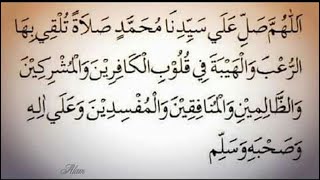 اَللّٰهُمَّ صَلِّ عَلَي سَيِّدِنَا مُحَمَّدٍ صَلَاةً تُلْقِي بِهَا
الرُّعْبَ وَالْهَيْبَةَ فِي قُلُوْبِ الْكَافِرِيْنَ وَالْمُشْرِكِيْنَ
وَالظَّالِمِيْنَ وَالْمُنَافِقِيْنَ وَالْمُفْسِدِيْنَ وَعَلَي اٰلِهِ
وَصَحْبِهِ وَسَلِّم